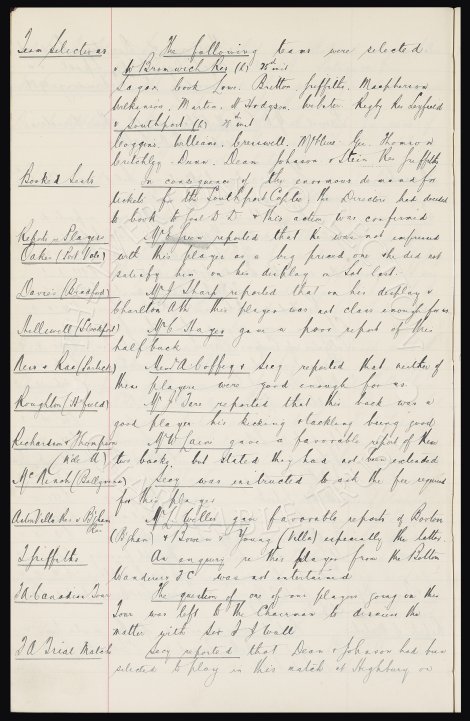 Team Selections The following teams were selected.
v W Bromwich Res (h) 28th inst
Sagar. Cook. Lowe. Britton. Griffiths. Macpherson
Wilkinson. Martin. H Hodgson. Webster. Rigby Res
v Southport (h) 28th inst
Coggins. Williams. Cresswell. McClure. Gee. Thomson
Critchley. Dunn. Dean. Johnson & Stein Res Griffiths
Booked Seats In consequence of the enormous demand for
tickets for the Southport Cup tie, the Directors had decided
to book to Goal D D & this action was confirmed
Reports re Players Mr E Green reported that he was not impressed
Oakes (Port Vale) with this player as a big priced one she did not
satisfy him on his display on Sat last.
Davies (Bradford) Mr J Sharp reported that on his display v
Charlton Ath this player was not class enough for us
Helliwell (Stockport) Mr C Hayes gave a poor report of this
half back
Neis & Rae (Partick) Messrs A Coffey & Secy reported that neither of
these players were good enough for us.
Roughton (H'field) Mr J Fare reported that this back was a
good player his kicking & tackling being good
Richardson & Thompson Mr W gave a favorable report of these
two backs, but stated they had not been extended
McNinch (Ballymena) Secy was instructed to ask the fee required
for this player
Aston Villa Res v B'ham Res Mr gave favorable reports of
(B'ham) & Bowen & Young (Villa) especially the latter.
T Griffiths An enquiry re this player from the Bolton
Wanderers F C was not entertained
F A Canadian Tour The question of one of our players going on this
Tour was left to the Chairman to discuss the
matter with Sir F J Wall
F A Trial Match Secy reported that Dean & Johnson had been
selected to play in this match at Highbury on